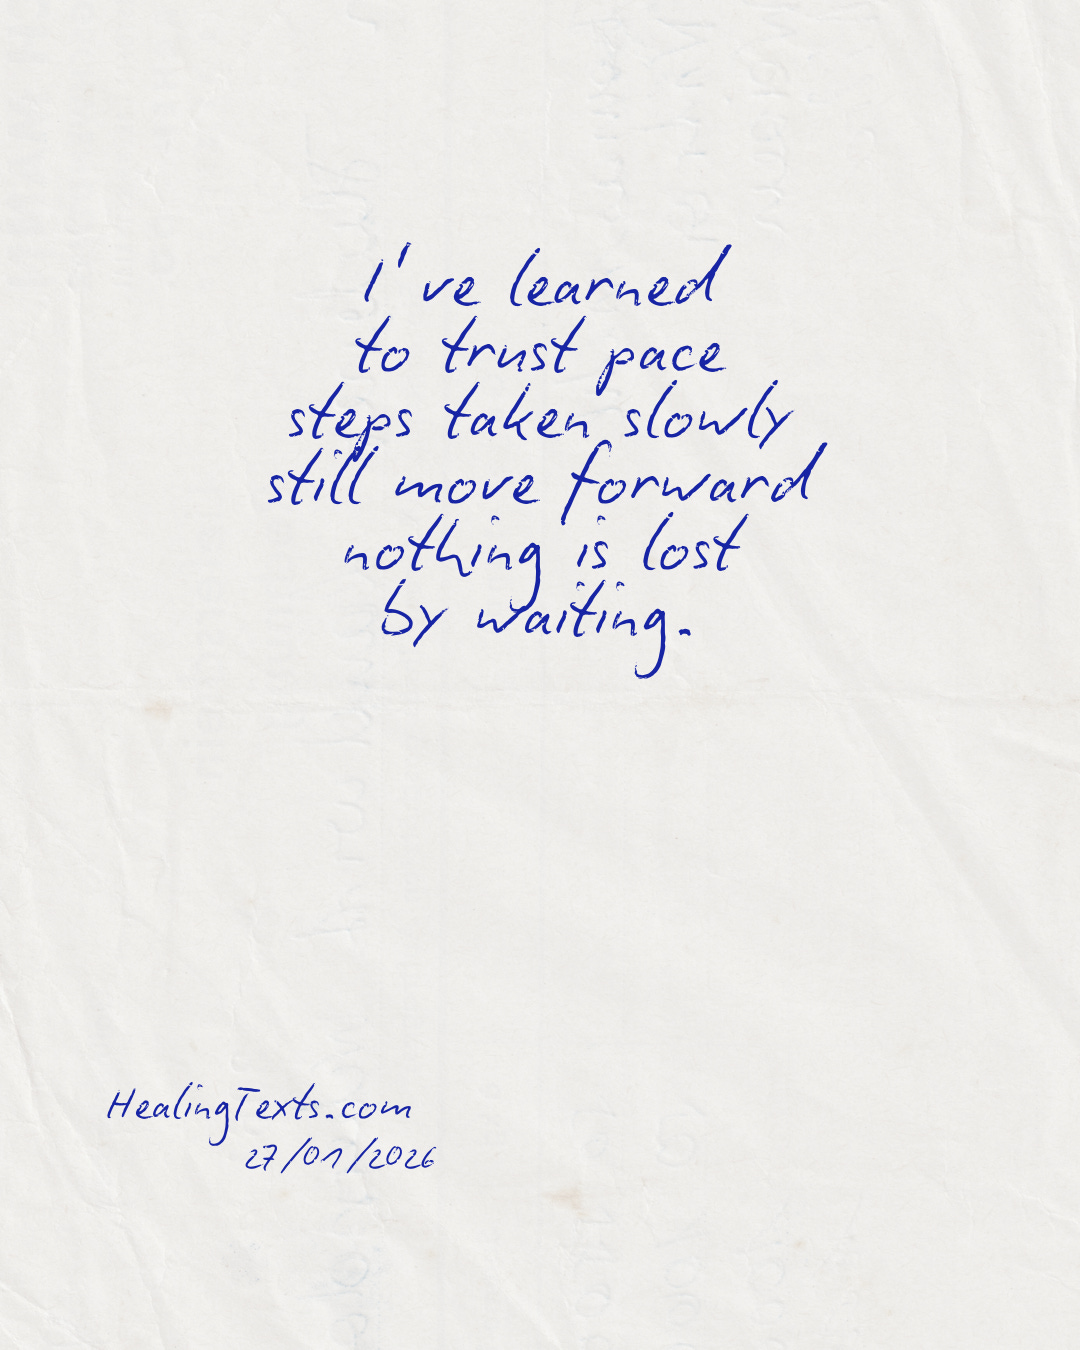 I've learned
to trust pace
steps taken slowly
still move forward
nothing is lost
by waiting.
HealingTexts.com
27/01/2026